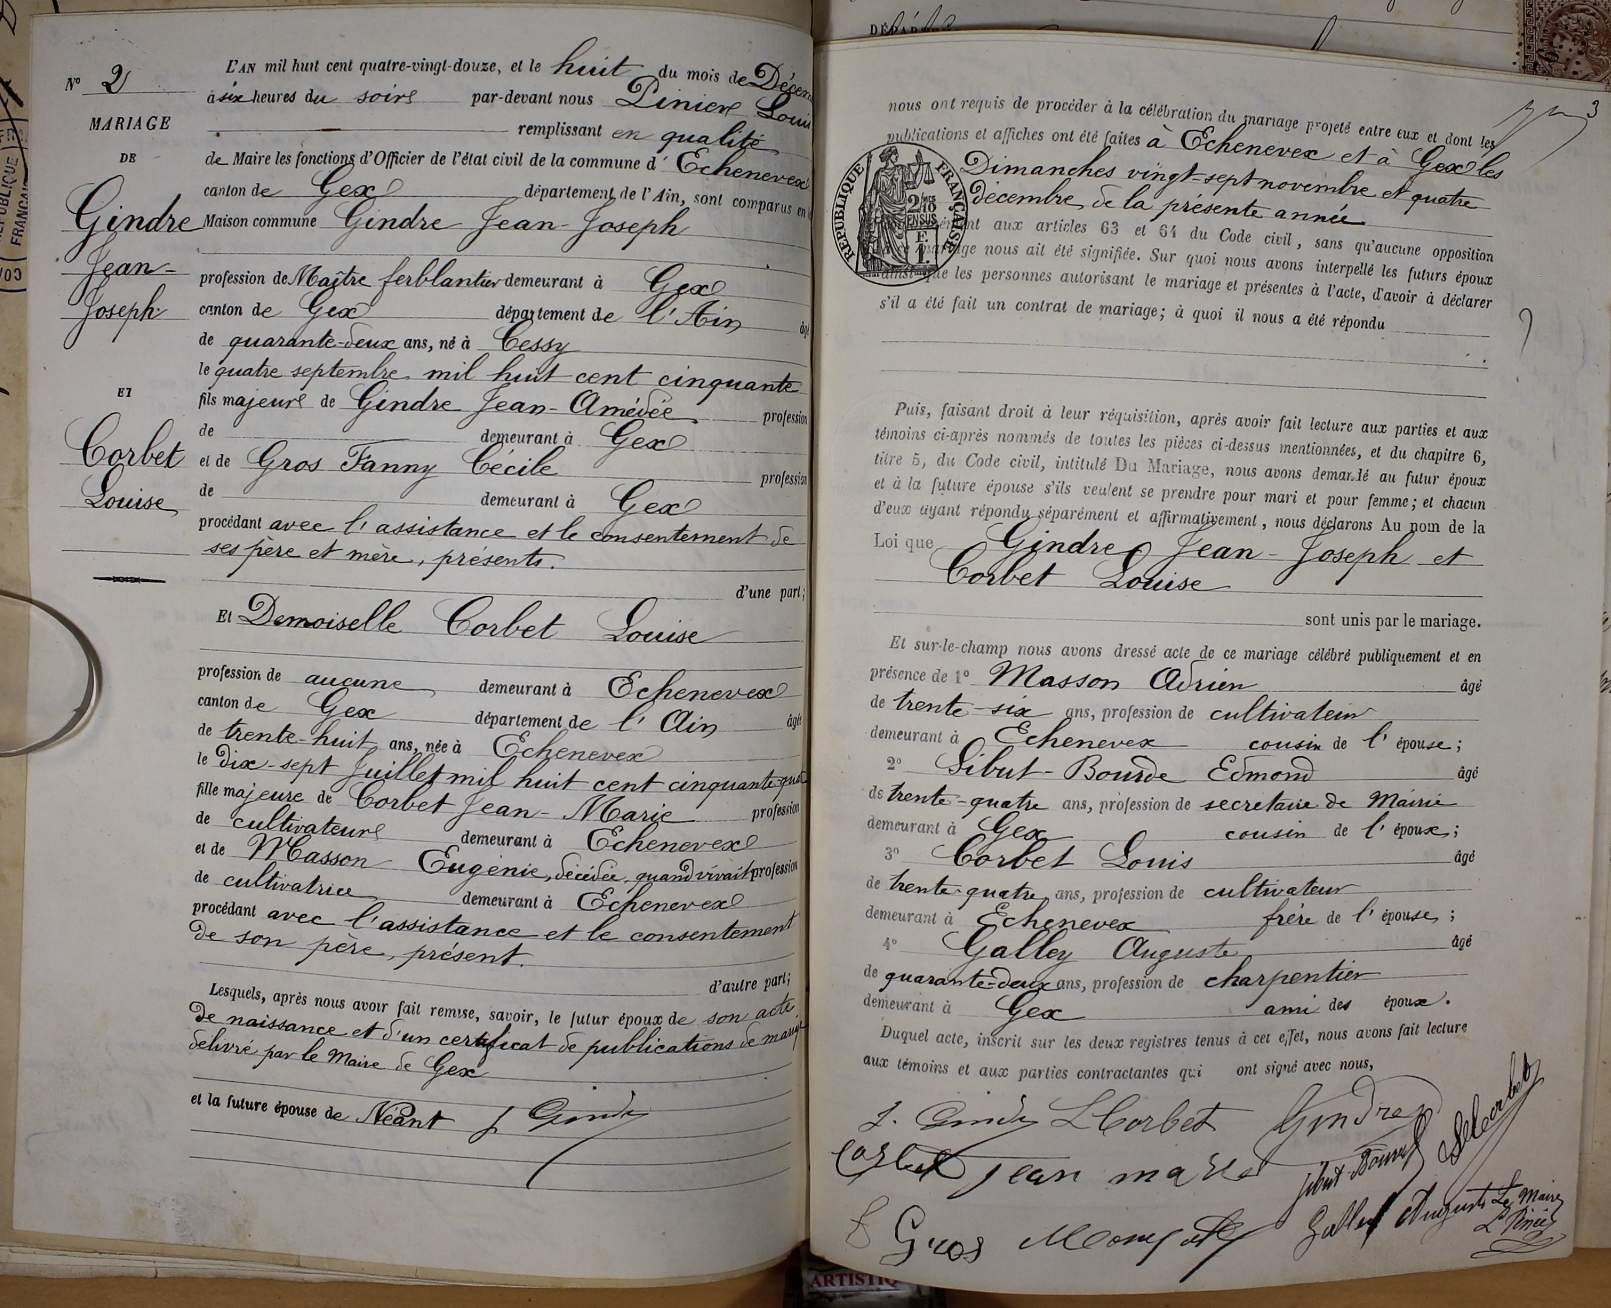 N° 2
MARIAGE
DE
Gindre
Jean-
Joseph
ET
Corbet
Louise
L'AN mil huit cent quatre-vingt-douze, et le huit du mois de Décem
à six heures du soir par-devant nous Pinier Louis
remplissant en qualité
de Maire les fonctions d'Officier de l'état civil de la commune d'Echenevex
canton de Gex département de l'Ain, sont comparus en
Maison commune Gindre Jean-Joseph
profession de Maître ferblantier demeurant à Gex
canton de Gex département de l'Ain âgé
de quarante-deux ans, né à Cessy
le quatre septembre mil huit cent cinquante
fils majeur de Gindre Jean-Amédée profession
de demeurant à Gex
et de Gros Fanny Cécile profession
de demeurant à Gex
procédant avec l'assistance et le consentement de
ses père et mère, présents.
d'une part;
Et Demoiselle Corbet Louise
profession de aucune demeurant à Echenevex
canton de Gex département de l'Ain âgée
de trente-huit ans, née à Echenevex
le Dix-sept Juillet mil huit cent cinquante-quat
fille majeure de Corbet Jean-Marie profession
de cultivateur demeurant à Echenevex
et de Masson Eugénie, décédée, quand vivait profession
de cultivatrice demeurant à Echenevex
procédant avec l'assistance et le consentement
de son père, présent.
d'autre part;
Lesquels, après nous avoir fait remise, savoir, le futur époux de son acte
de naissance et d'un certificat de publications de mariage
délivré par le Maire de Gex
et la future épouse de Néant J Gindre
3
nous ont requis de procéder à la célébration du mariage projeté entre eux et dont les
publications et affiches ont été faites à Echenevex et à Gex les
Dimanches vingt-sept novembre et quatre
Décembre de la présente année
RÉPUBLIQUE FRANÇAISE
2/10 EN SUS
aux articles 63 et 64 du Code civil, sans qu'aucune opposition
mariage nous ait été signifiée. Sur quoi nous avons interpellé les futurs époux
ainsi que les personnes autorisant le mariage et présentes à l'acte, d'avoir à déclarer
s'il a été fait un contrat de mariage; à quoi il nous a été répondu
Puis, faisant droit à leur réquisition, après avoir fait lecture aux parties et aux
témoins ci-après nommés de toutes les pièces ci-dessus mentionnées, et du chapitre 6,
titre 5, du Code civil, intitulé Du Mariage, nous avons demandé au futur époux
et à la future épouse s'ils veulent se prendre pour mari et pour femme; et chacun
d'eux ayant répondu séparément et affirmativement, nous déclarons Au nom de la
Loi que Gindre Jean-Joseph et
Corbet Louise
sont unis par le mariage.
Et sur-le-champ nous avons dressé acte de ce mariage célébré publiquement et en
présence de 1° Masson Adrien âgé
de trente-six ans, profession de cultivateur
demeurant à Echenevex cousin de l'épouse;
2° Sibut-Bourde Edmond âgé
de trente-quatre ans, profession de secrétaire de Mairie
demeurant à Gex cousin de l'époux;
3° Corbet Louis âgé
de trente-quatre ans, profession de cultivateur
demeurant à Echenevex frère de l'épouse;
4° Galley Auguste âgé
de quarante-deux ans, profession de charpentier
demeurant à Gex ami des époux.
Duquel acte, inscrit sur les deux registres tenus à cet effet, nous avons fait lecture
aux témoins et aux parties contractantes qui ont signé avec nous,
J. Gindre L Corbet Gindre
Corbet jean marie Sibut-Bourde
Galley Auguste Le Maire
F Gros L Pinier
ARTISTIQ